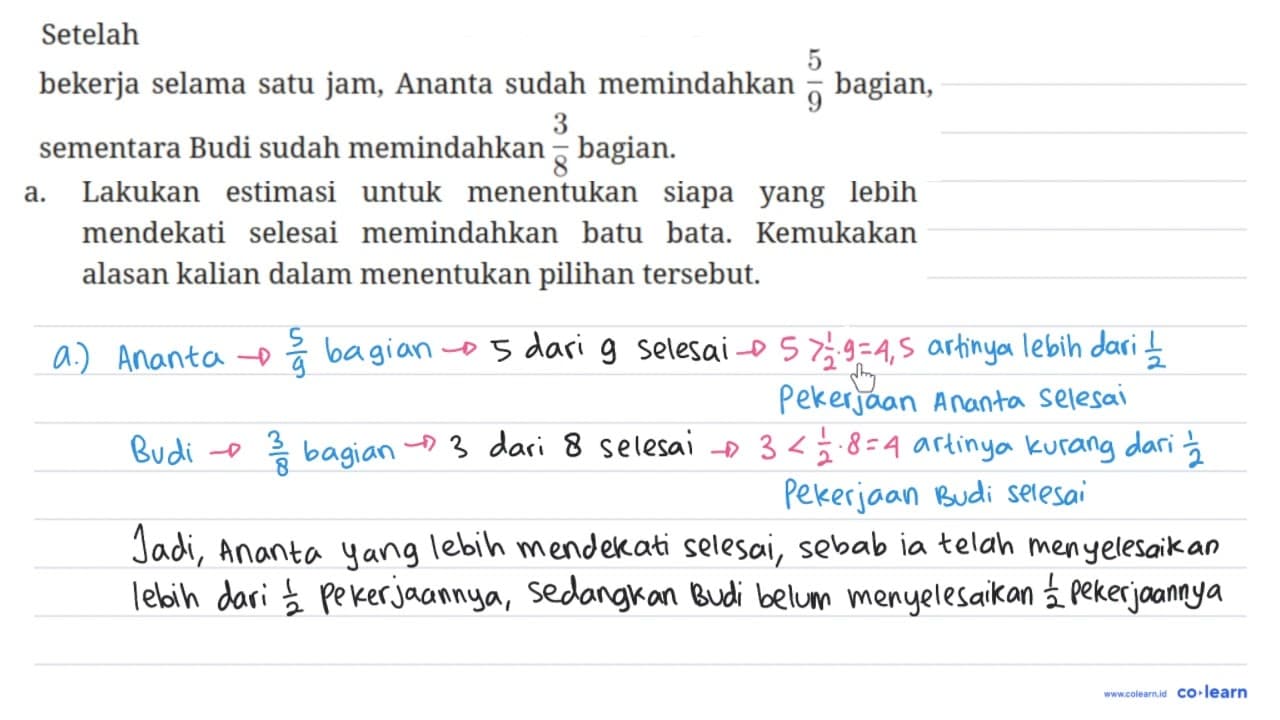 Setelah
bekerja selama satu jam, Ananta sudah memindahkan 5/9 bagian,
sementara Budi sudah memindahkan 3/8 bagian.
a. Lakukan estimasi untuk menentukan siapa yang lebih
mendekati selesai memindahkan batu bata. Kemukakan
alasan kalian dalam menentukan pilihan tersebut.
a.) Ananta → 5/9 bagian → 5 dari 9 selesai → 5 > 1/2 . 9 = 4,5 artinya lebih dari 1/2
Pekerjaan Ananta selesai
Budi → 3/8 bagian → 3 dari 8 selesai → 3 < 1/2 . 8 = 4 artinya kurang dari 1/2
Pekerjaan Budi selesai
Jadi, Ananta yang lebih mendekati selesai, sebab ia telah menyelesaikan
lebih dari 1/2 pekerjaannya, sedangkan Budi belum menyelesaikan 1/2 pekerjaannya
www.colearn.id co·learn